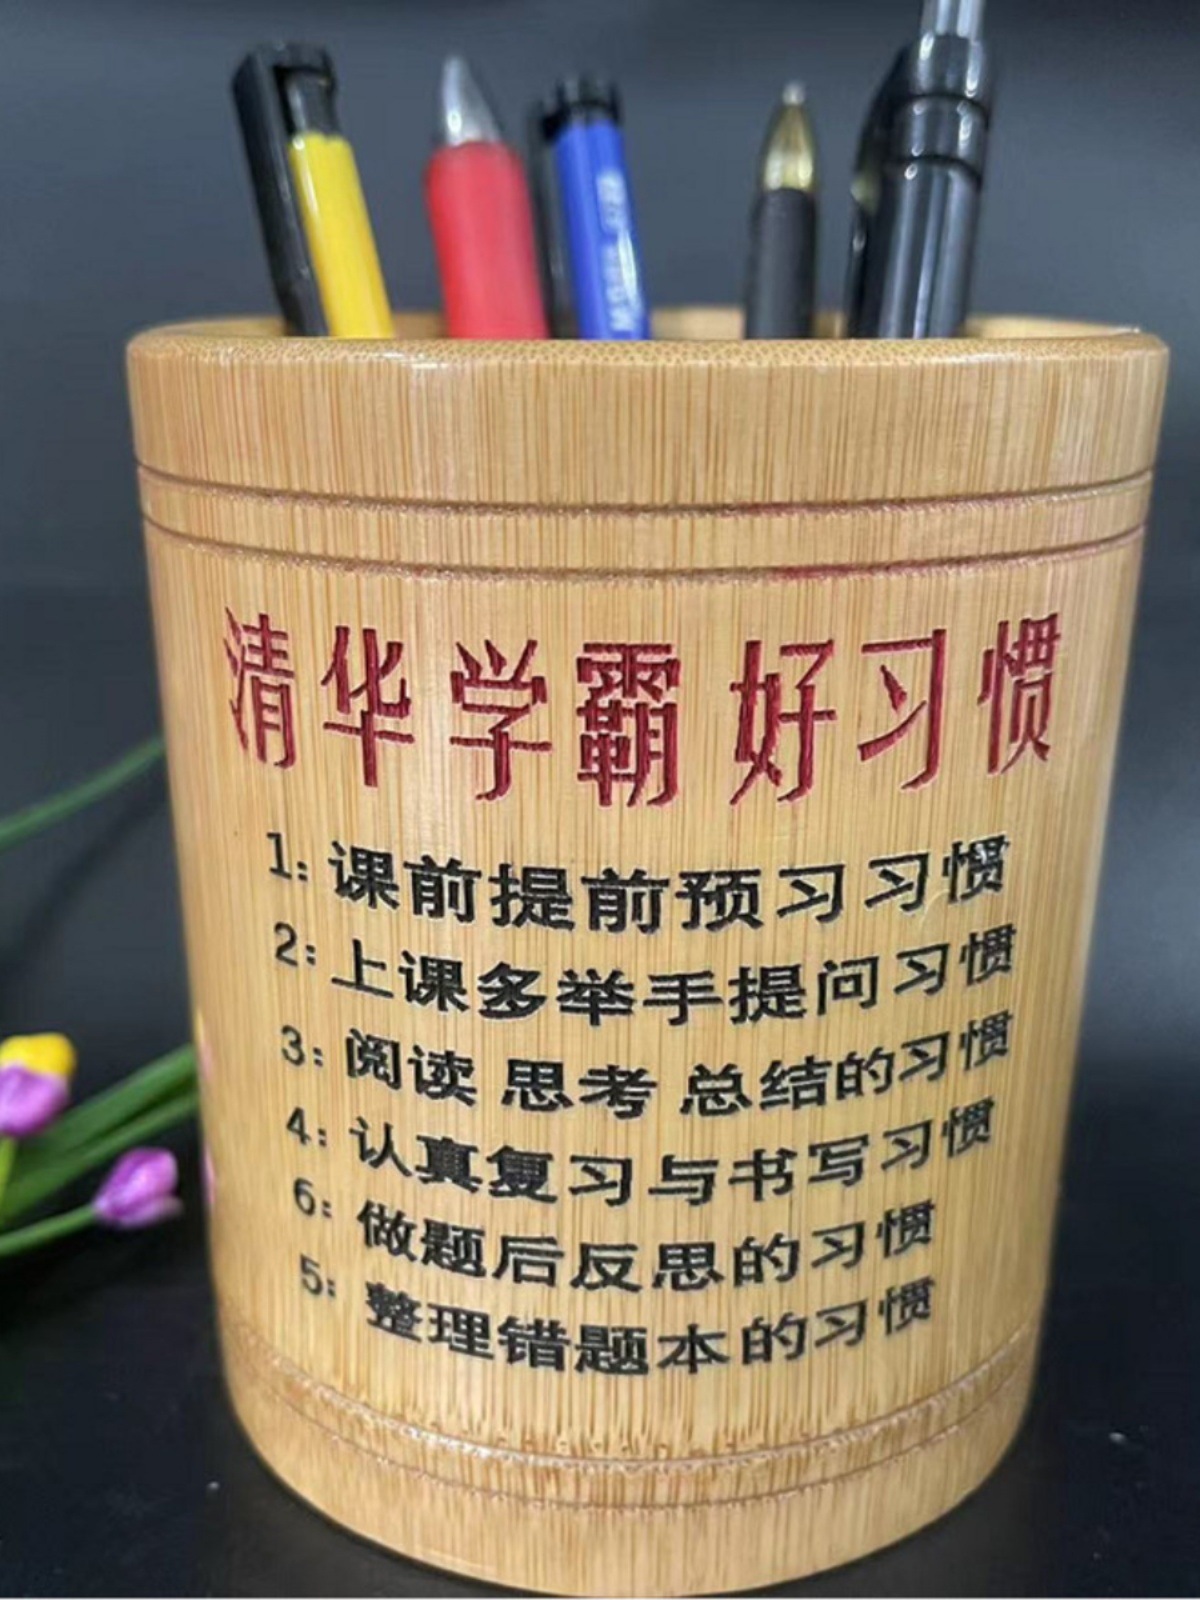 清华学霸 好习惯
1: 课前提前预习习惯
2: 上课多举手提问习惯
3: 阅读 思考 总结的习惯
4: 认真复习与书写习惯
6: 做题后反思的习惯
5: 整理错题本的习惯